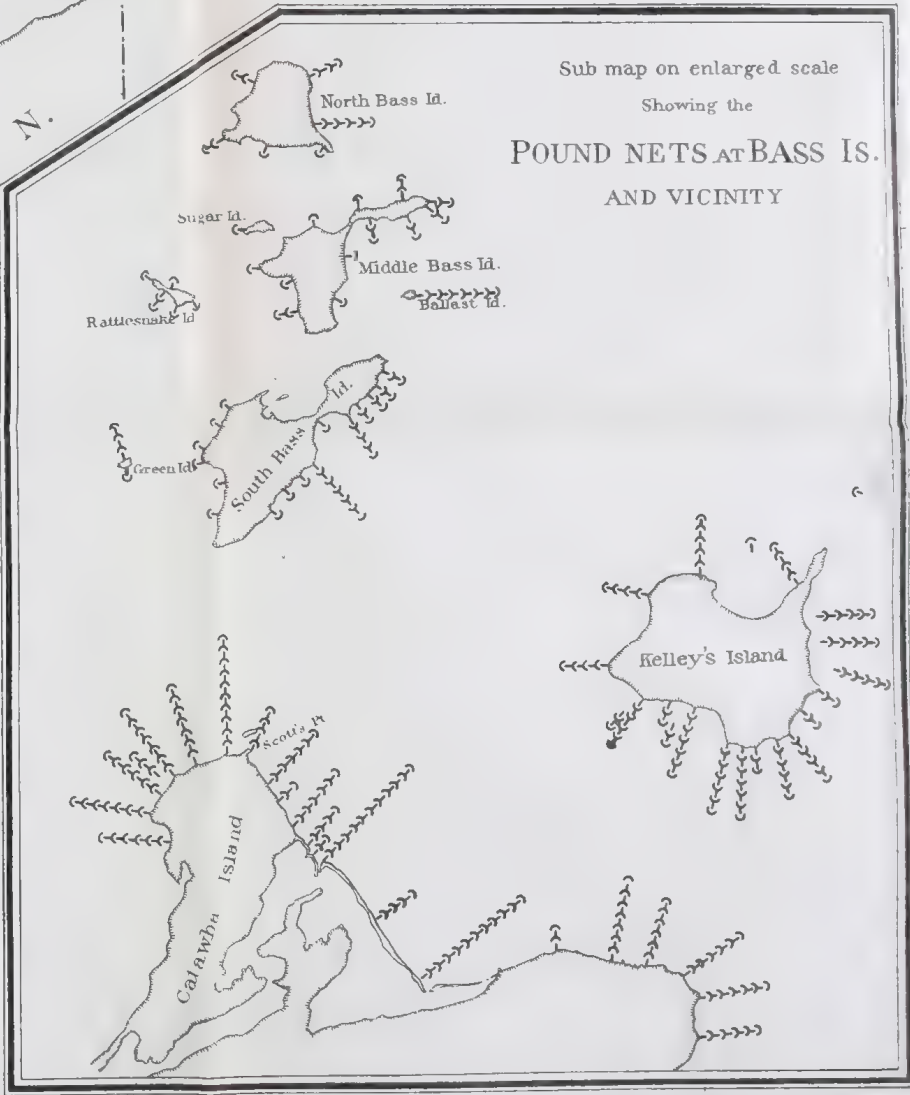 N.
Sub map on enlarged scale
Showing the
POUND NETS AT BASS IS.
AND VICINITY
North Bass Id.
Sugar Id.
Middle Bass Id.
Rattlesnake Id
Ballast Id.
South Bass Id.
Green Id
Kelley's Island
Scott's Pt
Catawba Island